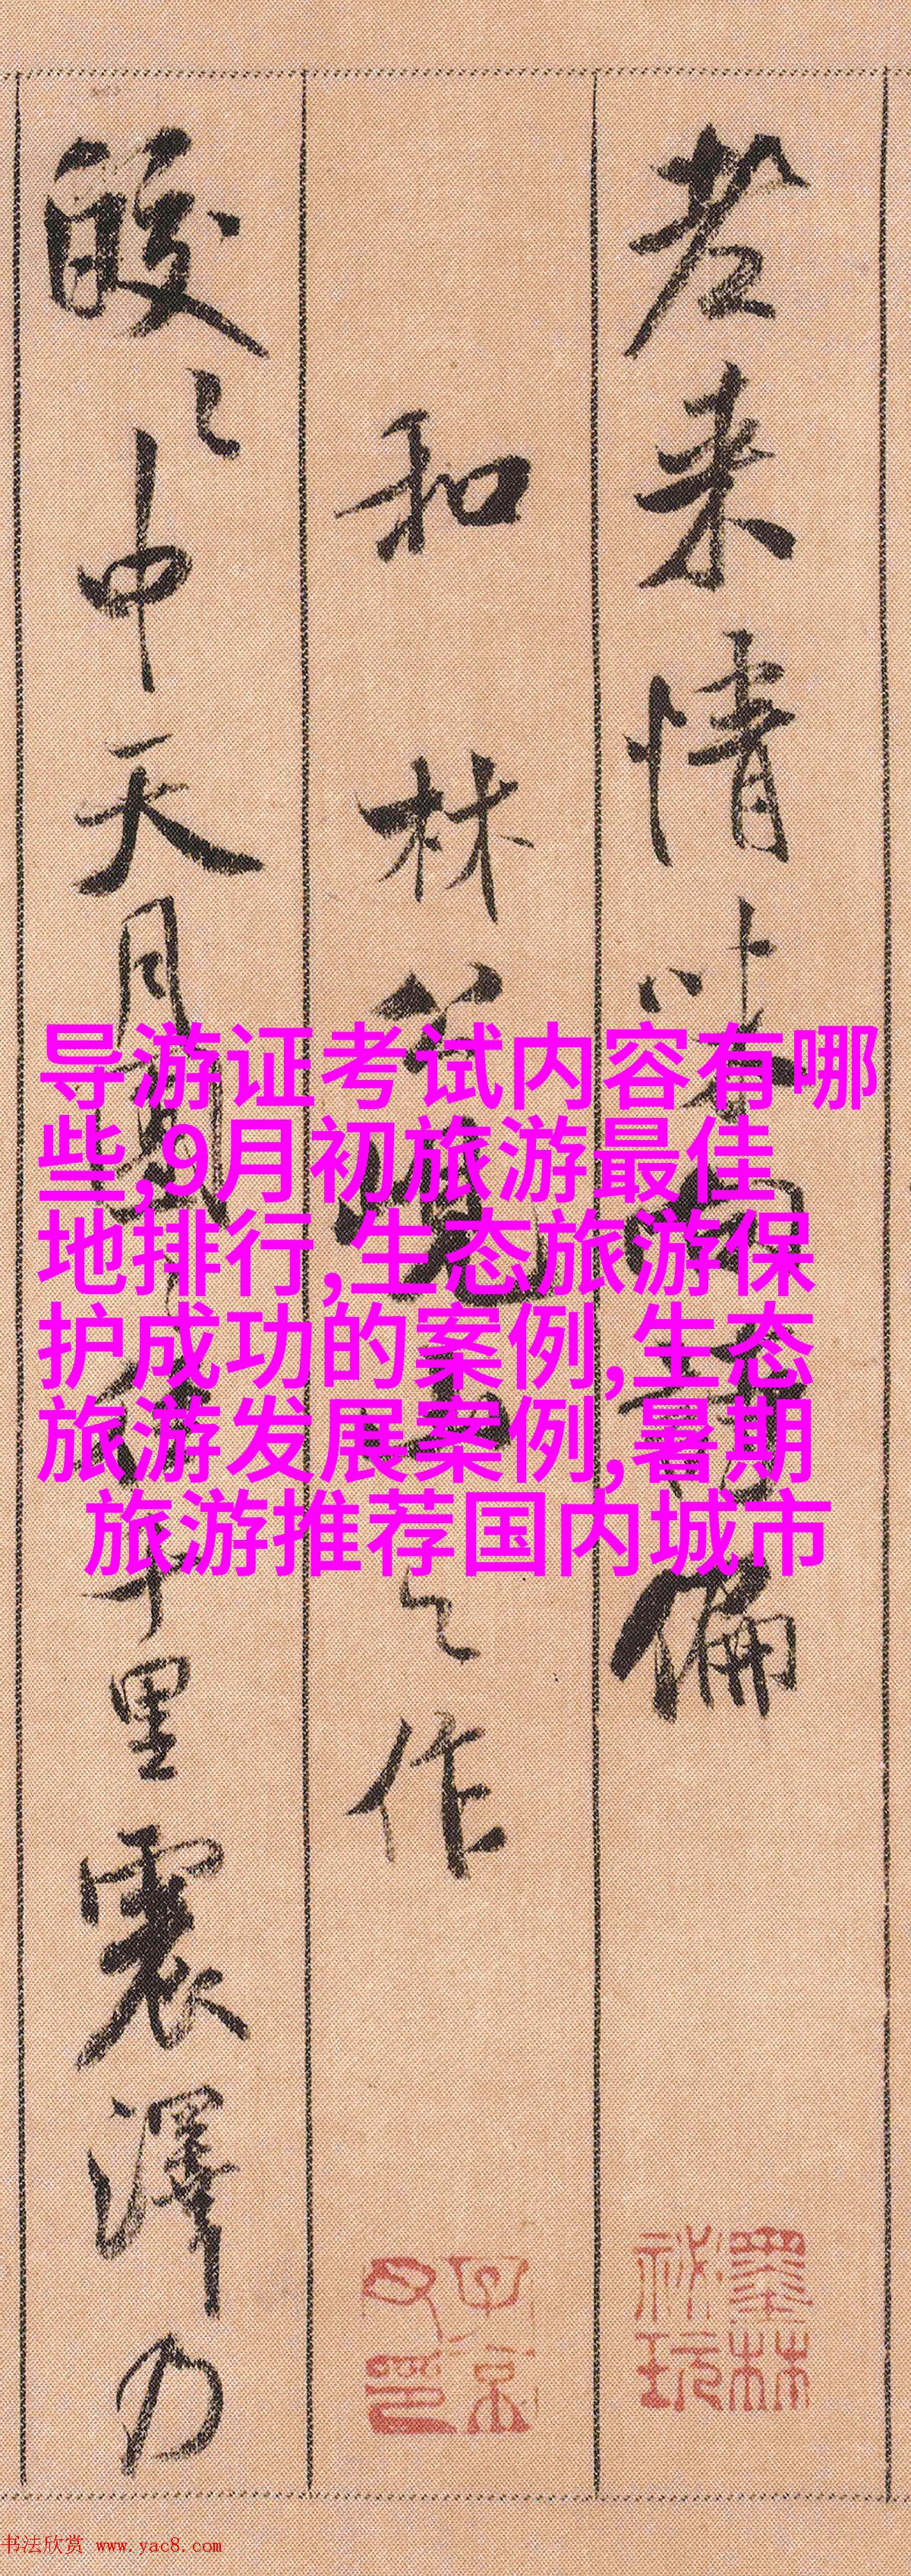 老来情味向诗偏
和林舍晓山之作
皎々中天月团々千里震泽乃
导游证考试内容有哪
些,9月初旅游最佳
地排行,生态旅游保
护成功的案例,生态
旅游发展案例,暑期
旅游推荐国内城市
墨林
秘玩
书法欣赏 www.yac8.com